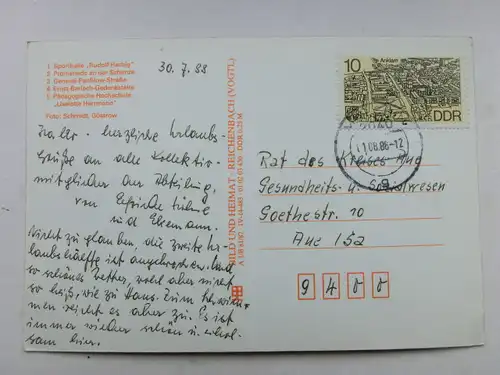 1 Sporthalle „Rudolf Harbig“
2 Promenade an der Schanze
3 General-Panfilow-Straße
4 Ernst-Barlach-Gedenkstätte
5 Pädagogische Hochschule
„Liselotte Herrmann“
Foto: Schmidt, Güstrow
30. 7. 88
herzliche Urlaubs-
grüße an alle Kollektiv-
mitglieder der Abteilung,
von
und Ehemann.
Nicht zu glauben, die zweite Ur-
laubshälfte ist angebrochen. Und
so schönes Wetter, wohl aber nicht
so heiß, wie zu Haus. Zum Schwim-
men reicht es aber zu. Es ist
immer wieder schön u. erhol-
sam hier.
BILD UND HEIMAT REICHENBACH (VOGTL)
10
Anklam
DDR
Rat des Kreises Aue
Gesundheits- u. Sozialwesen
Goethestraße 10
Aue 15a
9400